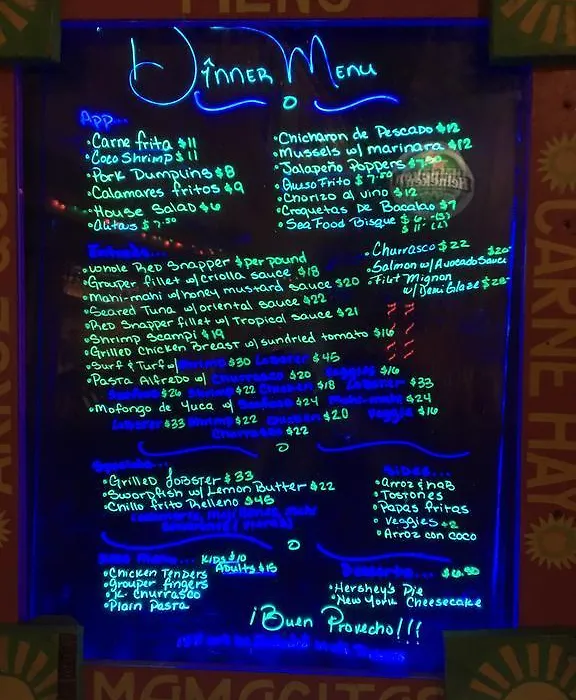 MENU
Dinner Menu
App...
•Carne frita $11
•Coco Shrimp $11
•Pork Dumplins $8
•Calamares fritos $9
•House Salad $6
•Alitas $7.50
•Chicharon de Pescado $12
•Mussels w/ marinara $12
•Jalapeño Poppers $7.50
•Queso Frito $7.50
•Chorizo al vino $12
•Croquetas De Bacalao $7
•Sea Food Bisque $6.-(S)
$11-(L)
•Whole Red Snapper $per pound
•Grouper fillet w/ criolla sauce $18
•Mahi-mahi w/ honey mustard sauce $20
•Seared Tuna w/ oriental sauce $22
•Red Snapper fillet w/ Tropical sauce $21
•Shrimp Scampi $19
•Grilled Chicken Breast w/ sundried tomato $16
•Churrasco $22
•Salmon w/ Avocado Sauce $20
•Filet Mignon
w/ Demi Glaze $28
•Surf & Turf w/ Shrimp $30 Lobster $45
•Pasta Alfredo w/ Churrasco $20 Veggies $16
Seafood $26 Shrimp $22 Chicken $18 Lobster $33
•Mofongo de Yuca w/ Seafood $24 Mahi-mahi $24
Lobster $33 Shrimp $22 Chicken $20 Veggie $16
Churrasco $22
Specials...
•Grilled Lobster $33
•Swordfish w/ Lemon Butter $22
•Chillo frito Rhelleno $45
Sides...
•Arroz i hab
•Tostones
•Papas fritas
•Veggies +2
•Arroz con coco
Kids $10
Adults $15
•Chicken Tenders
•Grouper fingers
•Jr. Churrasco
•Plain Pasta
Desserts... $6.50
•Hershey's Pie
•New York Cheesecake
¡Buen Provecho!!!
CARNE HAY
MAMACITAS